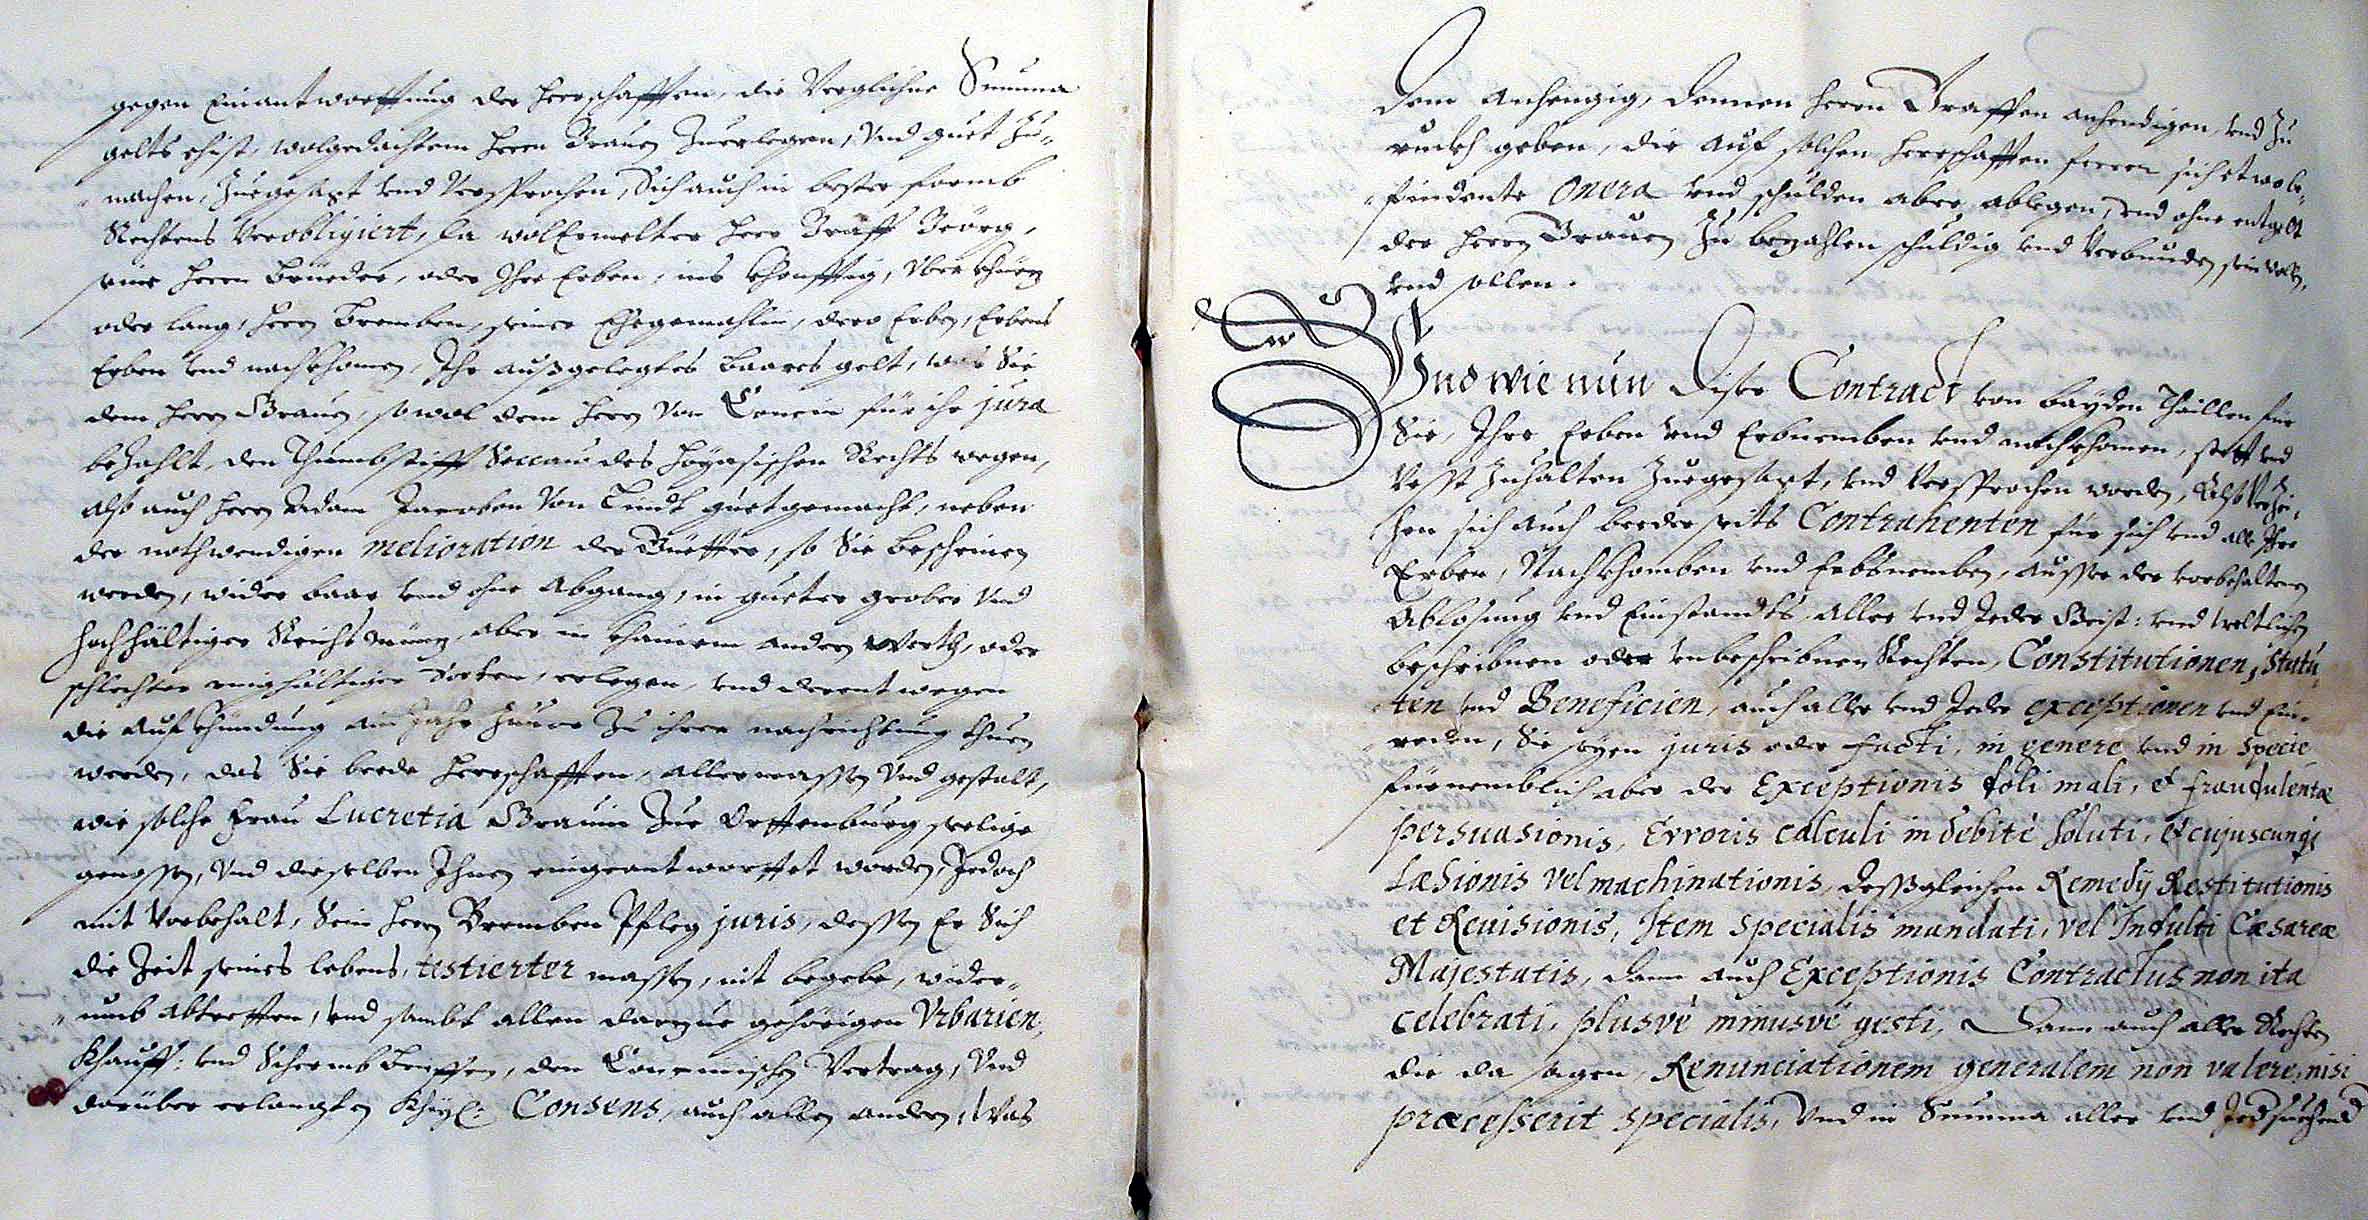 gegen Einantworttung der Herrschafften, die Verglichne Summa
gelts ehist, wolgedachtem Herrn Braun Zuerlegen, Und guet zu-
machen, Zuegesagt und Versprochen, Sich auch in bester formb
Rechtens Verobligiert, Da wolErmelter Herr Graff Geörg,
seine Herrn Brueder, oder Ihre Erben, ins khonfftig, Uber khurz
oder lang, Herrn Bremben, seiner Ehegemahlin, dero Erben, Erbens
Erben und nachkhomen, Ihr außgelegtes baares gelt, was Sie
dem Herrn Braun, sowol dem Herrn Von für ihr jura
bezahlt, den Thumbstifft Seccau des Rechts wegen,
alß auch Herrn Adam Jacoben Von Lindt guetgemacht, neben
der nothwendigen melioration der Güetter, so Sie bescheinen
werden, wider baar und ohne Abgang, in gueter grober Und
hochhältiger Reichs münz, aber in khainem andern Werth, oder
schlechter ringhältiger Sorten, erlegen, und derentwegen
die Aufkhündung ain Jahr Zuvor Zu ihrer nachrichtung thuen
werden, das Sie beede Herrschafften, allermassen Und gestalt,
wie solche Frau Lucretia Graüin Zur Orttenburg seelige
genossen, Und dieselben Ihnen eingeantworttet worden, Jedoch
mit Vorbehalt, Sein Herrn Bremben Pfleg juris, dessen Er Sich
die Zeit seines lebens, testierter massen, nit begebe, wider-
umb abtretten, und sambt allen darzue gehörigen Urbarien,
Khauff: und Schermb brieffen, den Vertrag, Und
darüber erlangten Khay: Consens, auch allen andern, Was
Dem Anhengig, denen Herrn Graffen anhendigen, und Zu
ruckh geben, die auf solchen Herrschafften ferrer sich etwo be-
findente Onera und schulden aber ablegen, und ohne entgelt
der Herrn Braun Zu bezahlen schuldig und Verbunden sein wollen,
und sollen.
Und wie nun Diser Contract von bayden Thaillen für
Sie, Ihre Erben und Erbnemben und nachkhomen, stett und
Vesst Zuhalten Zuegesagt, und Versprochen worden, Also Verzei-
hen sich auch beederseits Contrahenten für sich und alle Ihre
Erben, Nachkhomben und Erbsnemben, ausser der vorbehaltenen
Ablosung und Einstandts, Aller und Jeder Geist: und weltlichen
beschribnen oder unbeschribnen Rechten, Constitutionen, Statu-
ten und Beneficien, auch aller und Jeder exceptionen und Ein-
reden, Sie seyen juris oder facti, in genere und in specie
fürnemblich aber der Exceptionis doli mali, et fraudulentæ
persuasionis, Erroris calculi indebitè soluti, et cujuscunq;
Læsionis vel machinationis, deßgleichen Remedij Restitutionis
et Revisionis, Item specialis mandati, vel Indulti Cæsareæ
Majestatis, dann auch Exceptionis Contractus non ita
celebrati, plusvè minusvè gesti, Dann auch aller Rechten
die da sagen, Renunciationem generalem non valere, nisi
præcesserit specialis, Und in Summa aller und